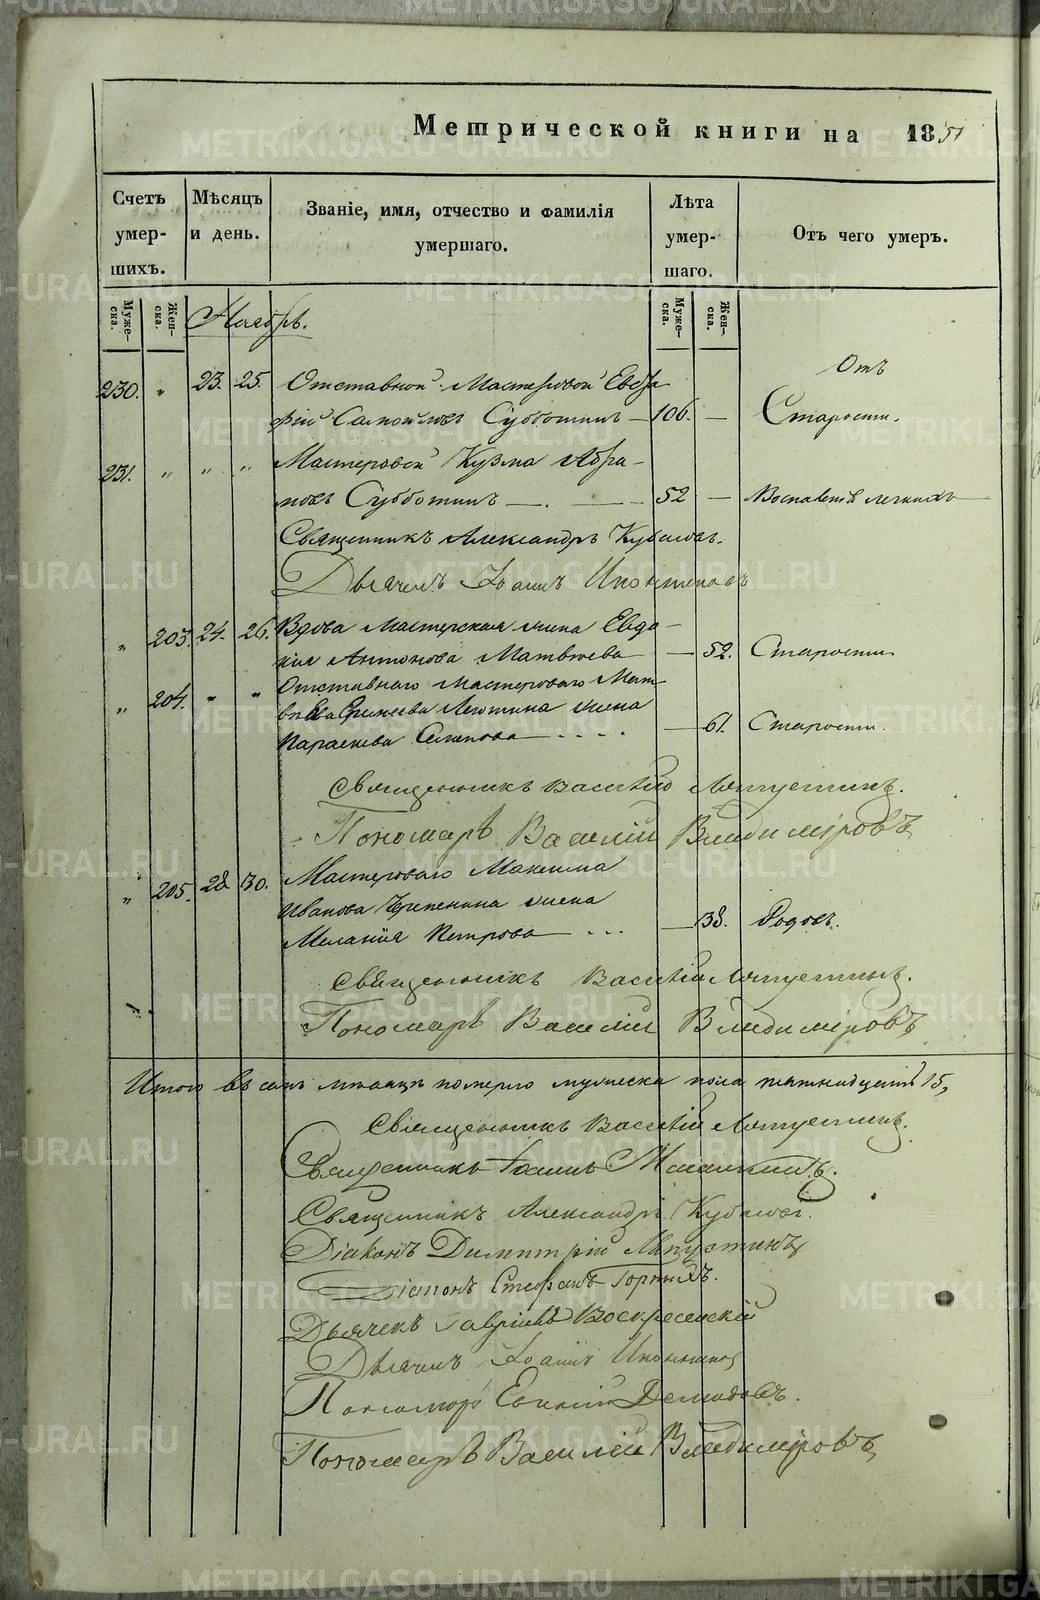 Метрической книги на 1851
Счетъ умер-шихъ.
Мѣсяцъ и день.
Званіе, имя, отчество и фамилія умершаго.
Лѣта умер-шаго.
Отъ чего умеръ.
Муже-ска.
Жен-ска.
Муже-ска.
Жен-ска.
Ноябрь.
230. " 23. 25. Отставной Мастеровой Евѳи- Отъ
фій Самойловъ Субботинъ — 106. — Старости.
231. " " " Мастеровой Кузма Абра-
мовъ Субботинъ — . — 52 — Воспаленія легкихъ
Священникъ Александръ
Дьячекъ Іоаннъ
" 203. 24. 26. Вдова Мастерская жена Евдо-
кия Антонова Матвѣева — 52. Старости
" 204. " " Отставнаго Мастероваго Мат-
вѣя Лютина жена
Параскева Семенова — 61. Старости.
Священникъ Василій
Пономарь Василій Владиміровъ
" 205. 28 30. Мастероваго Максима
Иванова жена
Меланія Петрова — 38. Родовъ.
Священникъ Василій
Пономарь Василій Владиміровъ
Итого въ семъ мѣсяцѣ померло мужеска пола пятнадцать 15,
Священникъ Василій
Священникъ Іоаннъ
Священникъ Александръ
Діаконъ Димитрій
Діаконъ Стефанъ Горныхъ.
Дьячекъ Гавріилъ Воскресенскій
Дьячекъ Іоаннъ
Пономарь Евгеній Демидовъ.
Пономарь Василій Владиміровъ
METRIKI.GASO-URAL.RU